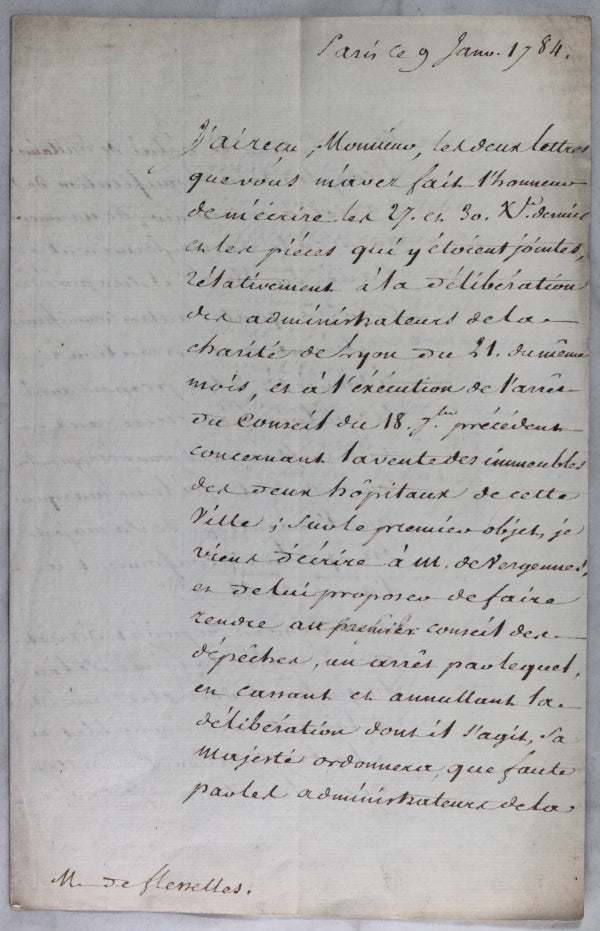 Paris ce 9 Janv. 1784.
J'ai reçu, Monsieur, les deux lettres
que vous m'avez fait l'honneur
de m'écrire les 27. et 30. Xbre. dernier
et les piéces qui y étoient jointes,
rélativement à la délibération
des administrateurs de la
charité de Lyon du 21. du même
mois, et à l'éxécution de l'arrêt
du Conseil du 18. 7bre précédent
concernant la vente des immeubles
des deux hôpitaux de cette
Ville; Sur le premier objet, je
viens d'écrire à M. de Vergennes,
et de lui proposer de faire
rendre au premier conseil des
dépêches, un arrêt par lequel,
en cassant et annullant la
délibération dont il s'agit, Sa
Majesté ordonnera, que faute
par les administrateurs de la
M. de flesselles.